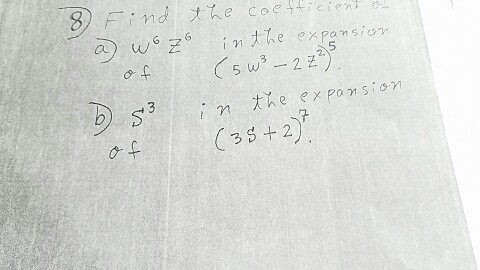 8) Find the coefficient of
a) w⁶ z⁶ in the expansion
of (5w³ - 2z²)⁵.
b) s³ in the expansion
of (3s + 2)⁷.